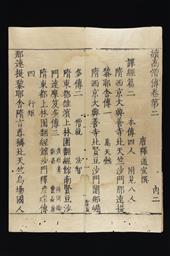 續高僧傳卷第二
唐釋道宣撰
譯經篇二 本傳四人 附見八人
隋西京大興善寺北天竺沙門那連
耶舍傳一
隋西京大興善寺北賢豆沙門闍那崛
多傳二
隋東都雒濱上林園翻經館南賢豆沙
門達摩笈多傳三
隋東都上林園翻經館沙門釋彥琮傳
四 行矩
那連提黎耶舍隋言尊稱北天竺烏場國人